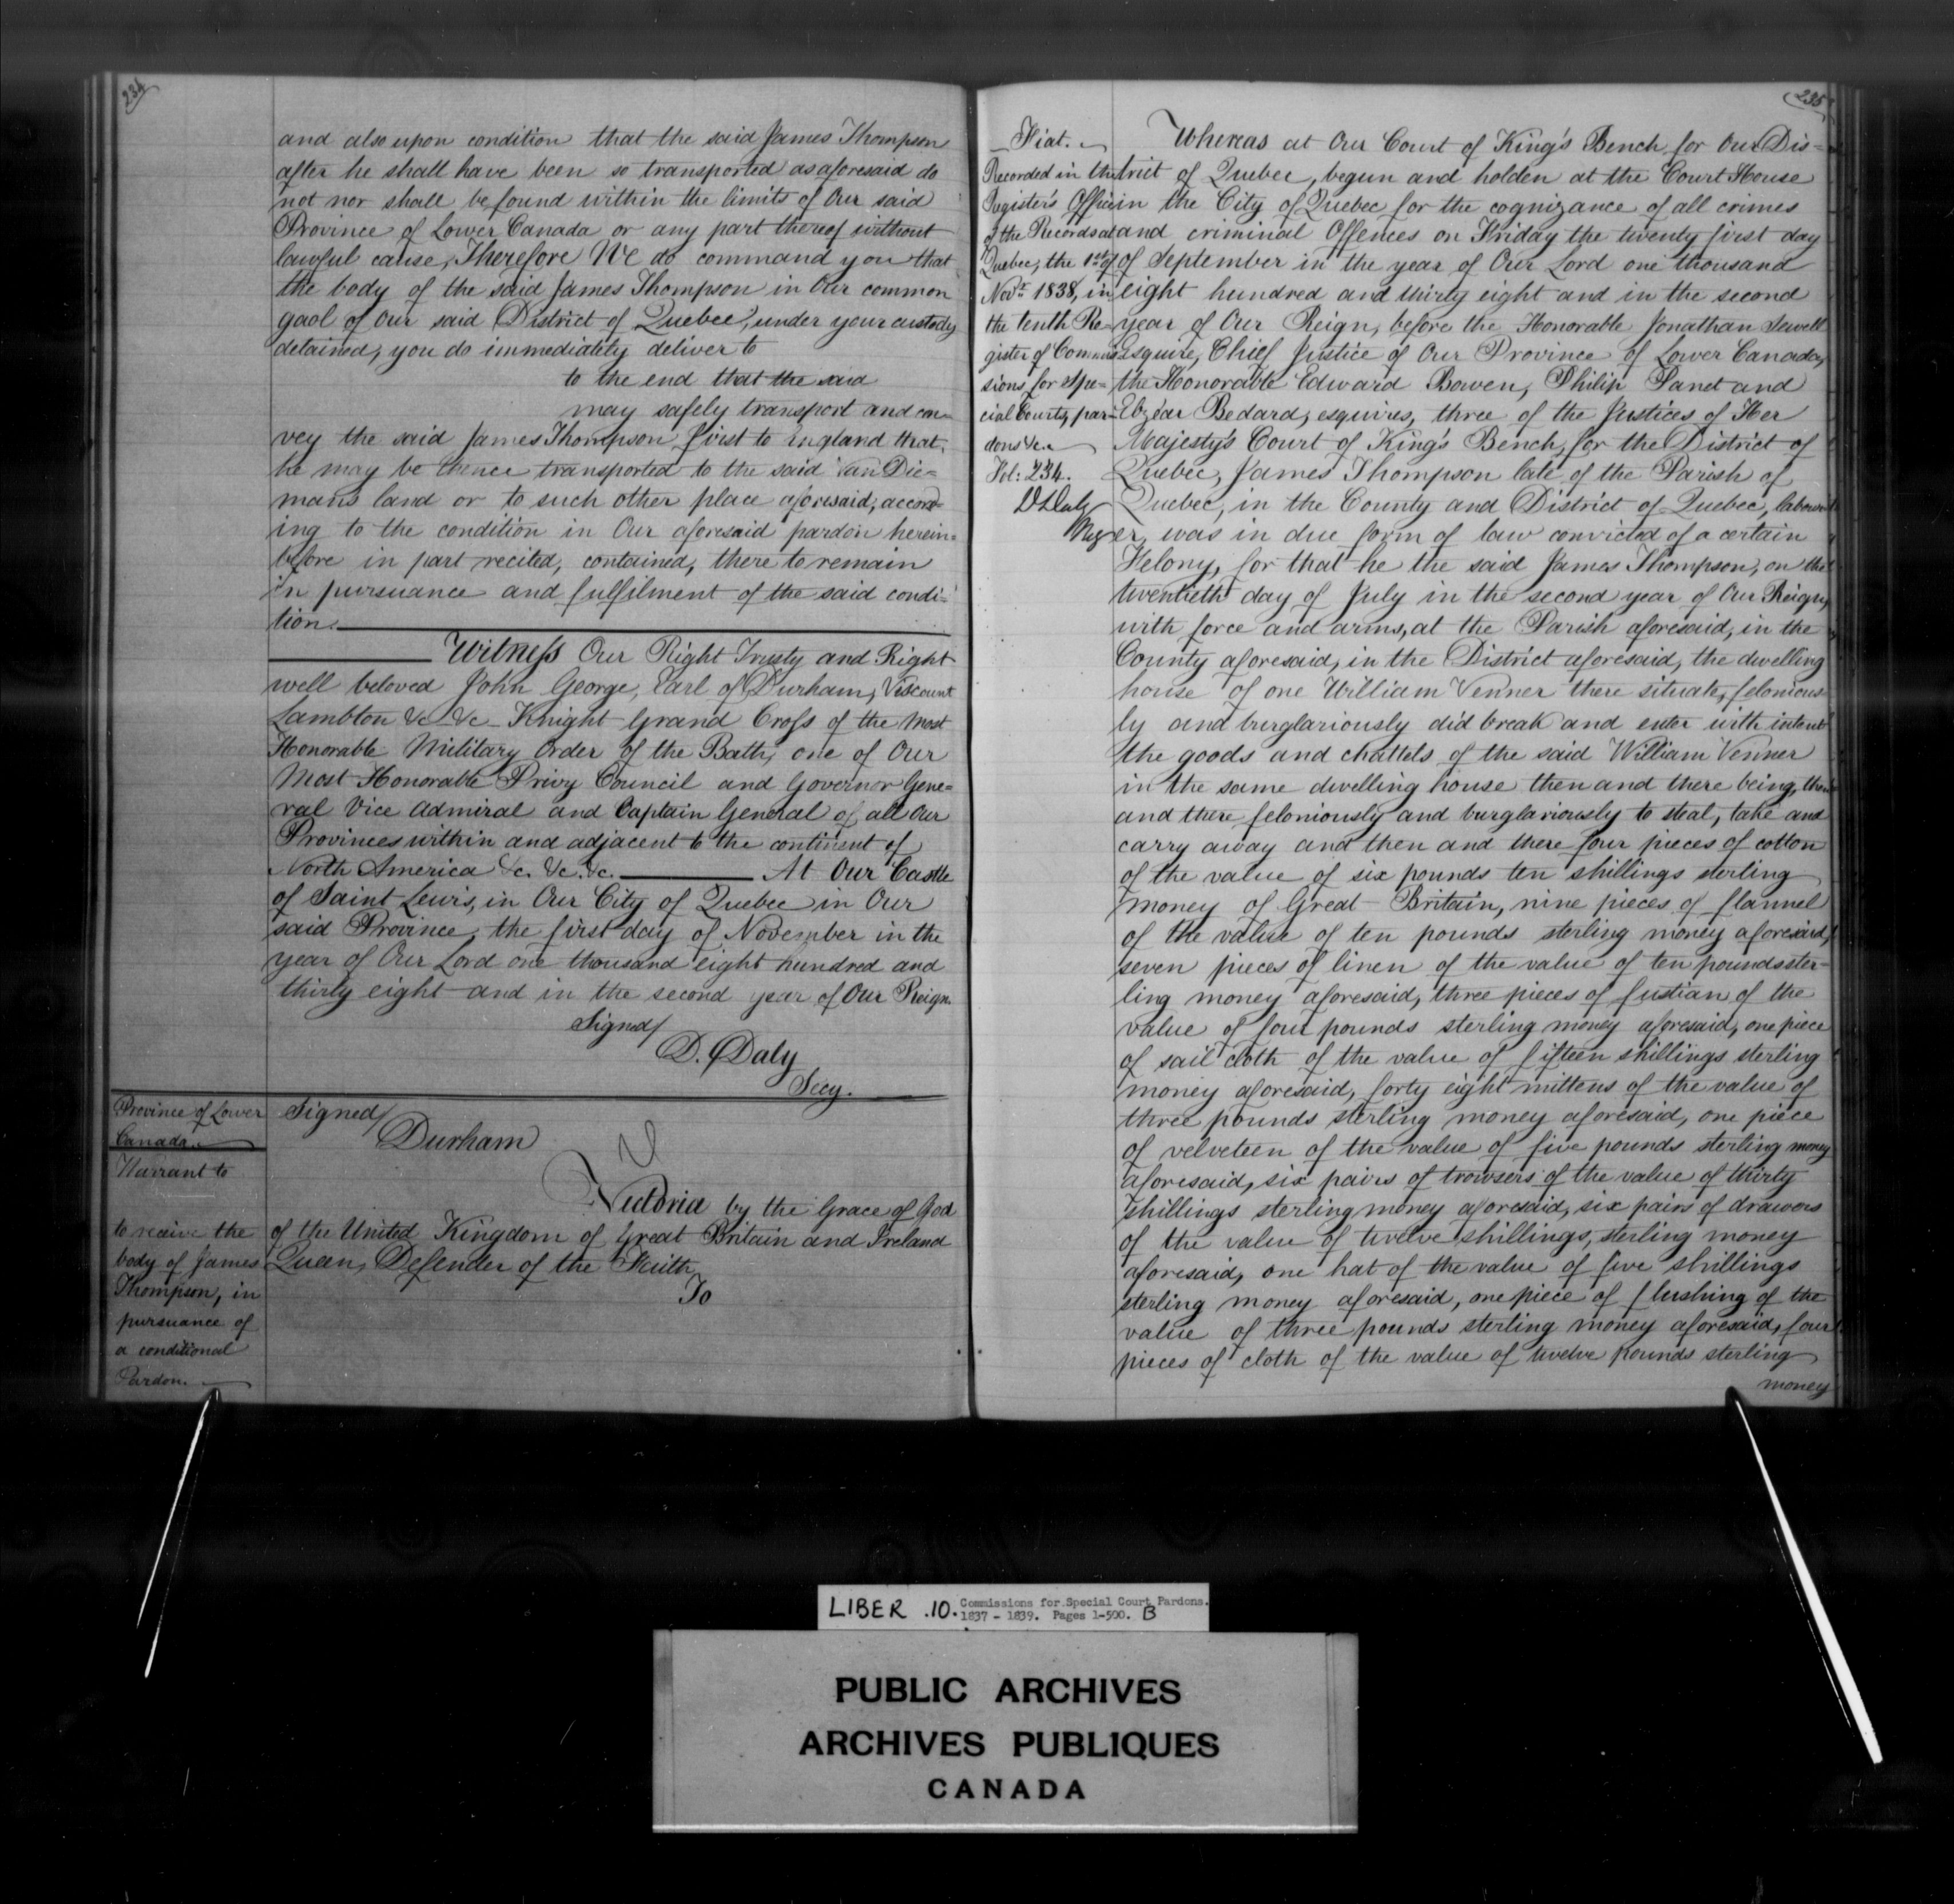 234
and also upon condition that the said James Thompson
after he shall have been so transported as aforesaid do
not nor shall be found within the limits of Our said
Province of Lower Canada or any part thereof without
lawful cause, Therefore We do command you that
the body of the said James Thompson in Our common
gaol of Our said District of Quebec, under your custody
detained, you do immediately deliver to
to the end that the said
may safely transport and con-
vey the said James Thompson first to England that
he may be thence transported to the said Van Die-
mans land or to such other place aforesaid, accord-
ing to the condition in Our aforesaid pardon herein-
before in part recited, contained, there to remain
in pursuance and fulfilment of the said condi-
tion.
Witness Our Right Trusty and Right
well beloved John George, Earl of Durham, Viscount
Lambton &c &c Knight Grand Cross of the Most
Honorable Military Order of the Bath, one of Our
Most Honorable Privy Council and Governor Gene-
ral Vice Admiral and Captain General of all Our
Provinces within and adjacent to the continent of
North America &c. &c. &c. At Our Castle
of Saint Lewis, in Our City of Quebec in Our
said Province, the first day of November in the
year of Our Lord one thousand eight hundred and
thirty eight and in the second year of Our Reign.
Signed/
D. Daly
Secy.
Province of Lower
Canada.
Warrant to
to receive the
body of James
Thompson, in
pursuance of
a conditional
Pardon.
Signed/
Durham
Victoria by the Grace of God
of the United Kingdom of Great Britain and Ireland
Queen, Defender of the Faith
To
235
Fiat.
Recorded in the
Register's Office
of the Records at
Quebec, the 1st of
Novr 1838, in
the tenth Re-
gister of Commis
sions for Spe-
cial Courts, par-
dons &c.
Fol: 234.
D Daly
Regr
Whereas at Our Court of King's Bench for Our Dis-
trict of Quebec, begun and holden at the Court House
in the City of Quebec for the cognizance of all crimes
and criminal Offences on Friday the twenty first day
of September in the year of Our Lord one thousand
eight hundred and thirty eight and in the second
year of Our Reign, before the Honorable Jonathan Sewell
Esquire, Chief Justice of Our Province of Lower Canada,
the Honorable Edward Bowen, Philip Panet and
Elzéar Bedard, esquires, three of the Justices of Her
Majesty's Court of King's Bench, for the District of
Quebec, James Thompson late of the Parish of
Quebec, in the County and District of Quebec, labour-
er, was in due form of law convicted of a certain
Felony, for that he the said James Thompson, on the
twentieth day of July in the second year of Our Reign,
with force and arms, at the Parish aforesaid, in the
County aforesaid, in the District aforesaid, the dwelling
house of one William Venner there situate, felonious-
ly and burglariously did break and enter with intent
the goods and chattels of the said William Venner
in the same dwelling house then and there being, then
and there feloniously and burglariously to steal, take and
carry away and then and there four pieces of cotton
of the value of six pounds ten shillings sterling
money of Great Britain, nine pieces of flannel
of the value of ten pounds sterling money aforesaid,
seven pieces of linen of the value of ten pounds ster-
ling money aforesaid, three pieces of fustian of the
value of four pounds sterling money aforesaid, one piece
of sail cloth of the value of fifteen shillings sterling
money aforesaid, forty eight mittens of the value of
three pounds sterling money aforesaid, one piece
of velveteen of the value of five pounds sterling money
aforesaid, six pairs of trowsers of the value of thirty
shillings sterling money aforesaid, six pairs of drawers
of the value of twelve shillings, sterling money
aforesaid, one hat of the value of five shillings
sterling money aforesaid, one piece of flushing of the
value of three pounds sterling money aforesaid, four
pieces of cloth of the value of twelve pounds sterling
money
LIBER .10. Commissions for Special Court Pardons.
1837 - 1839. Pages 1-500. B
PUBLIC ARCHIVES
ARCHIVES PUBLIQUES
CANADA